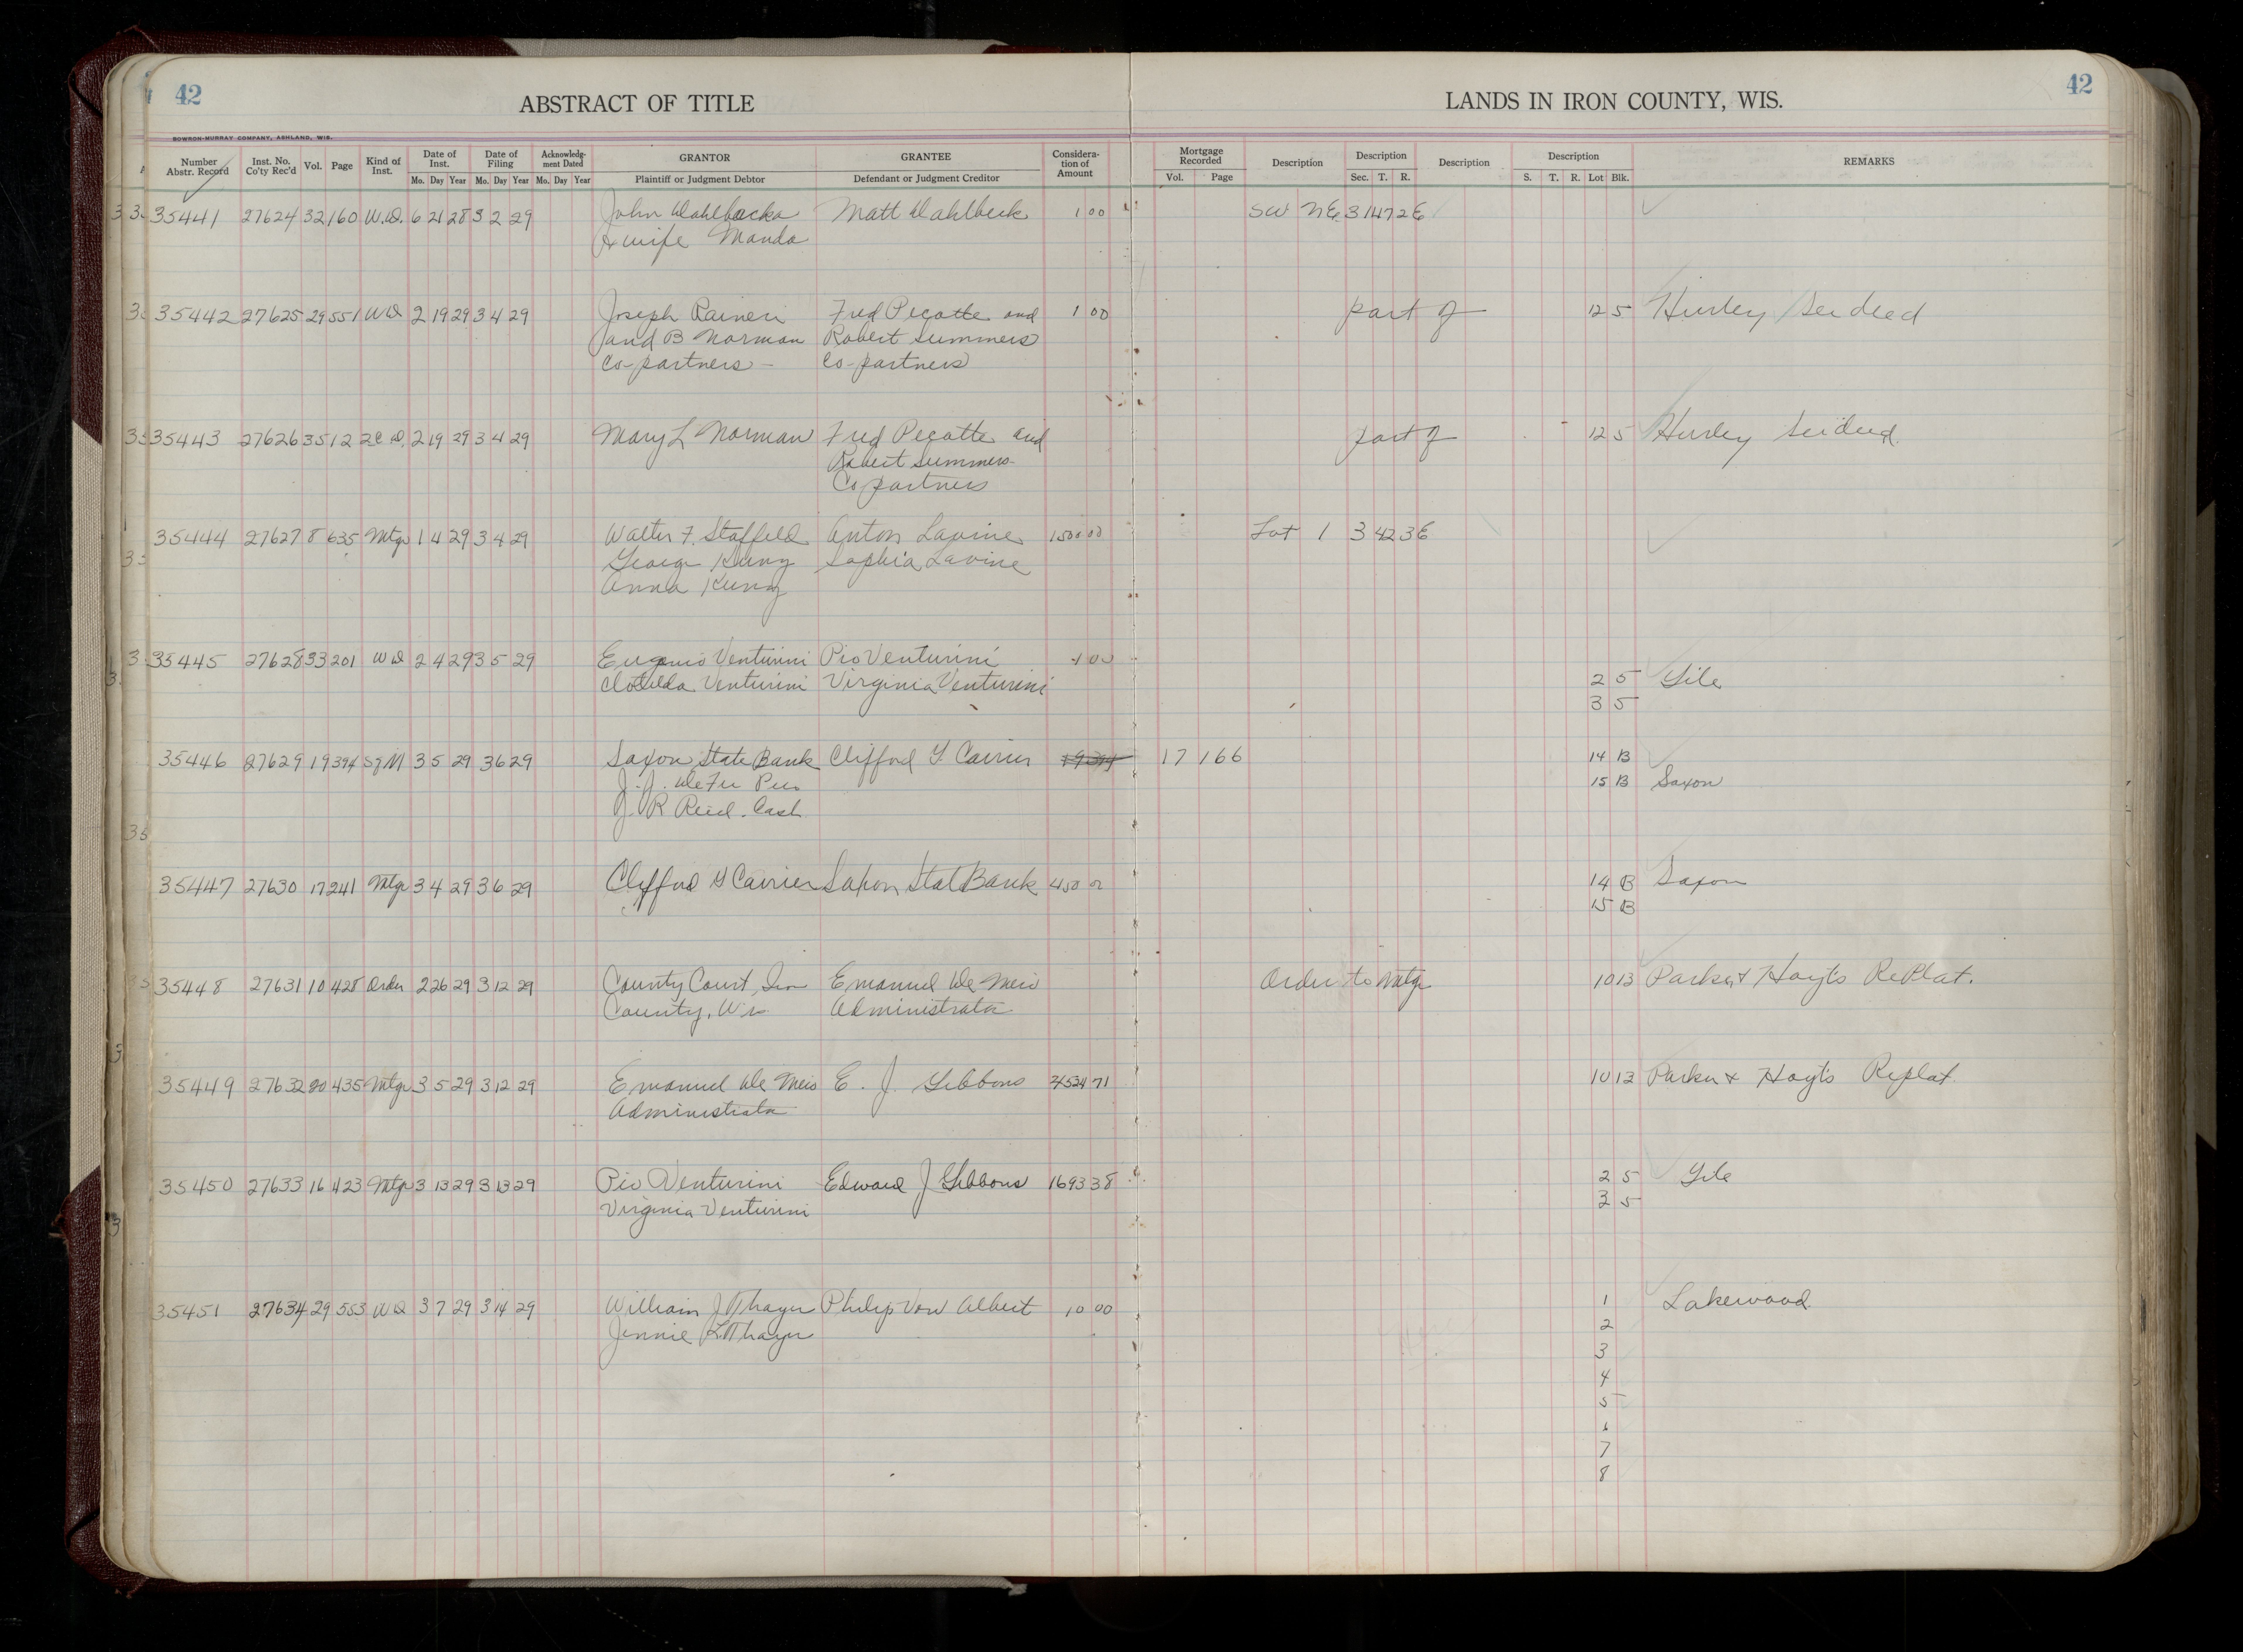 42
ABSTRACT OF TITLE
LANDS IN IRON COUNTY, WIS.
42
BOWRON-MURRAY COMPANY, ASHLAND, WIS.
Number Abstr. Record Inst. No. Co'ty Rec'd Vol. Page Kind of Inst. Date of Inst. Date of Filing Acknowledg-ment Dated GRANTOR GRANTEE Considera-tion of Amount Mortgage Recorded Description Description Description Description REMARKS
Mo. Day Year Mo. Day Year Mo. Day Year Plaintiff or Judgment Debtor Defendant or Judgment Creditor Vol. Page Sec. T. R. S. T. R. Lot Blk.
35441 27624 32 160 W.D. 6 21 28 3 2 29 John Dahlbacka Matt Dahlbeck 1 00 SW NE 31 47 2E
& wife Manda
35442 27625 29 551 WD 2 19 29 3 4 29 Joseph Raineri Fred Pecotte and 1 00 part of 12 5 Hurley See deed
and B Norman Robert Summers
Co-partners - Co-partners
35443 27626 35 12 2C D. 2 19 29 3 4 29 Mary L Norman Fred Pecotte and part of 12 5 Hurley See deed
Robert Summers
Copartners
35444 27627 8 635 Mtge 1 4 29 3 4 29 Walter F. Staffeld Anton Lavine 1500 00 Lot 1 3 42 3E
George Kuny Sophia Lavine
Anna Kuny
35445 27628 33 201 WD 2 4 29 3 5 29 Eugenio Venturini Pio Venturini 1 00
Clotilda Venturini Virginia Venturini 2 5 Gile
3 5
35446 27629 19 394 SqM 3 5 29 3 6 29 Saxon State Bank Clifford G Carrier 19 394 17 166 14 B
J. J. DeFer Pres 15 B Saxon
J. R Reid. Cash.
35447 27630 17 241 Mtge 3 4 29 3 6 29 Clifford G Carrier Saxon Stat Bank 450 00 14 B Saxon
15 B
35448 27631 10 428 Order 2 26 29 3 12 29 County Court, Iron Emanuel De Meio Order to Mtge 10 13 Parker & Hoyt's RePlat.
County, Wis Administrator
35449 27632 20 435 Mtge 3 5 29 3 12 29 Emanuel De Meio E. J. Gibbons 2453471 10 13 Parker & Hoyt's Replat.
Administrator
35450 27633 16 423 Mtge 3 13 29 3 13 29 Pio Venturini Edward J Gibbons 1693 38 2 5 Gile
Virginia Venturini 3 5
35451 27634 29 553 WD 3 7 29 3 14 29 William J Thayer Philip Von Albert 10 00 1 Lakewood
Jennie L Thayer 2
3
4
5
6
7
8